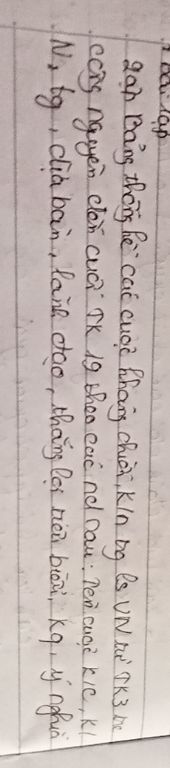 Bài tập
Lập bảng thống kê các cuộc kháng chiến, k/n tg ls VN từ TK3 tr
công nguyên đến cuối TK 19 theo các nd sau: Tên cuộc k/c, k/
N, tg, địa bàn, lãnh đạo, thắng lợi tiêu biểu, kq, ý nghĩa